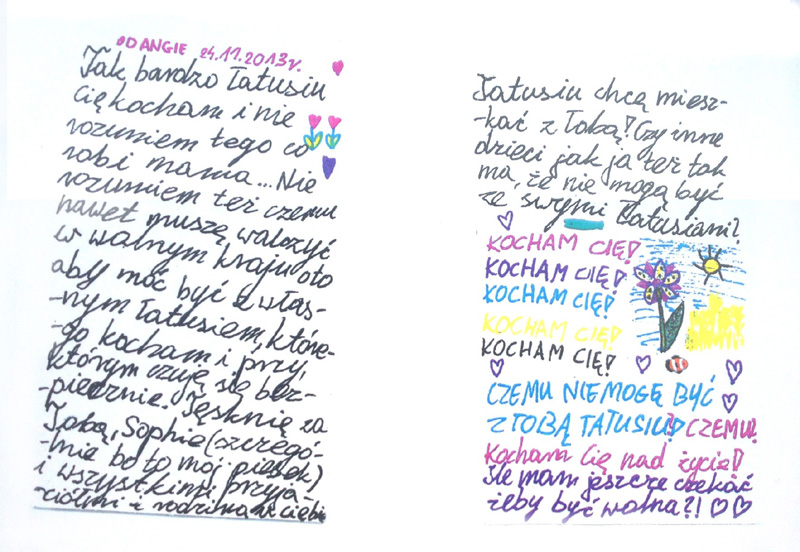 OD ANGIE 24.11.2013r.
Tak bardzo Tatusiu
Cię kocham i nie
rozumiem tego co
robi mama... Nie
rozumiem też czemu
nawet muszę walczyć
w wolnym kraju oto
aby móc być z włas-
-nym Tatusiem, które-
-go kocham i przy,
którym czują się bez-
-piecznie. Tęsknię za
Tobą, Sophie (szczegól-
-nie bo to mój piesek)
i wszystkimi przyja-
-ciółmi i rodziną w
Tatusiu chcą miesz-
-kać z Tobą! Czy inne
dzieci jak ja też tak
ma, że nie mogą być
ze swymi Tatusiami?
KOCHAM CIĘ!
KOCHAM CIĘ!
KOCHAM CIĘ!
KOCHAM CIĘ!
KOCHAM CIĘ!
CZEMU NIEMOGĘ BYĆ
Z TOBĄ TATUSIU!? CZEMU!
Kocham Cię nad życie!
Ile mam jeszcze czekać
żeby być wolna?!